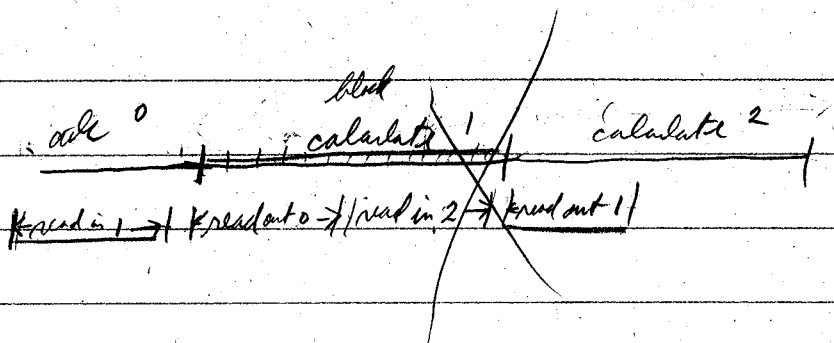 block
calc 0 calculate 1 calculate 2
read in 1 read out 0 read in 2 read out 1